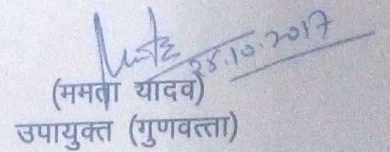 28.10.2017
(ममता यादव)
उपायुक्त (गुणवत्ता)